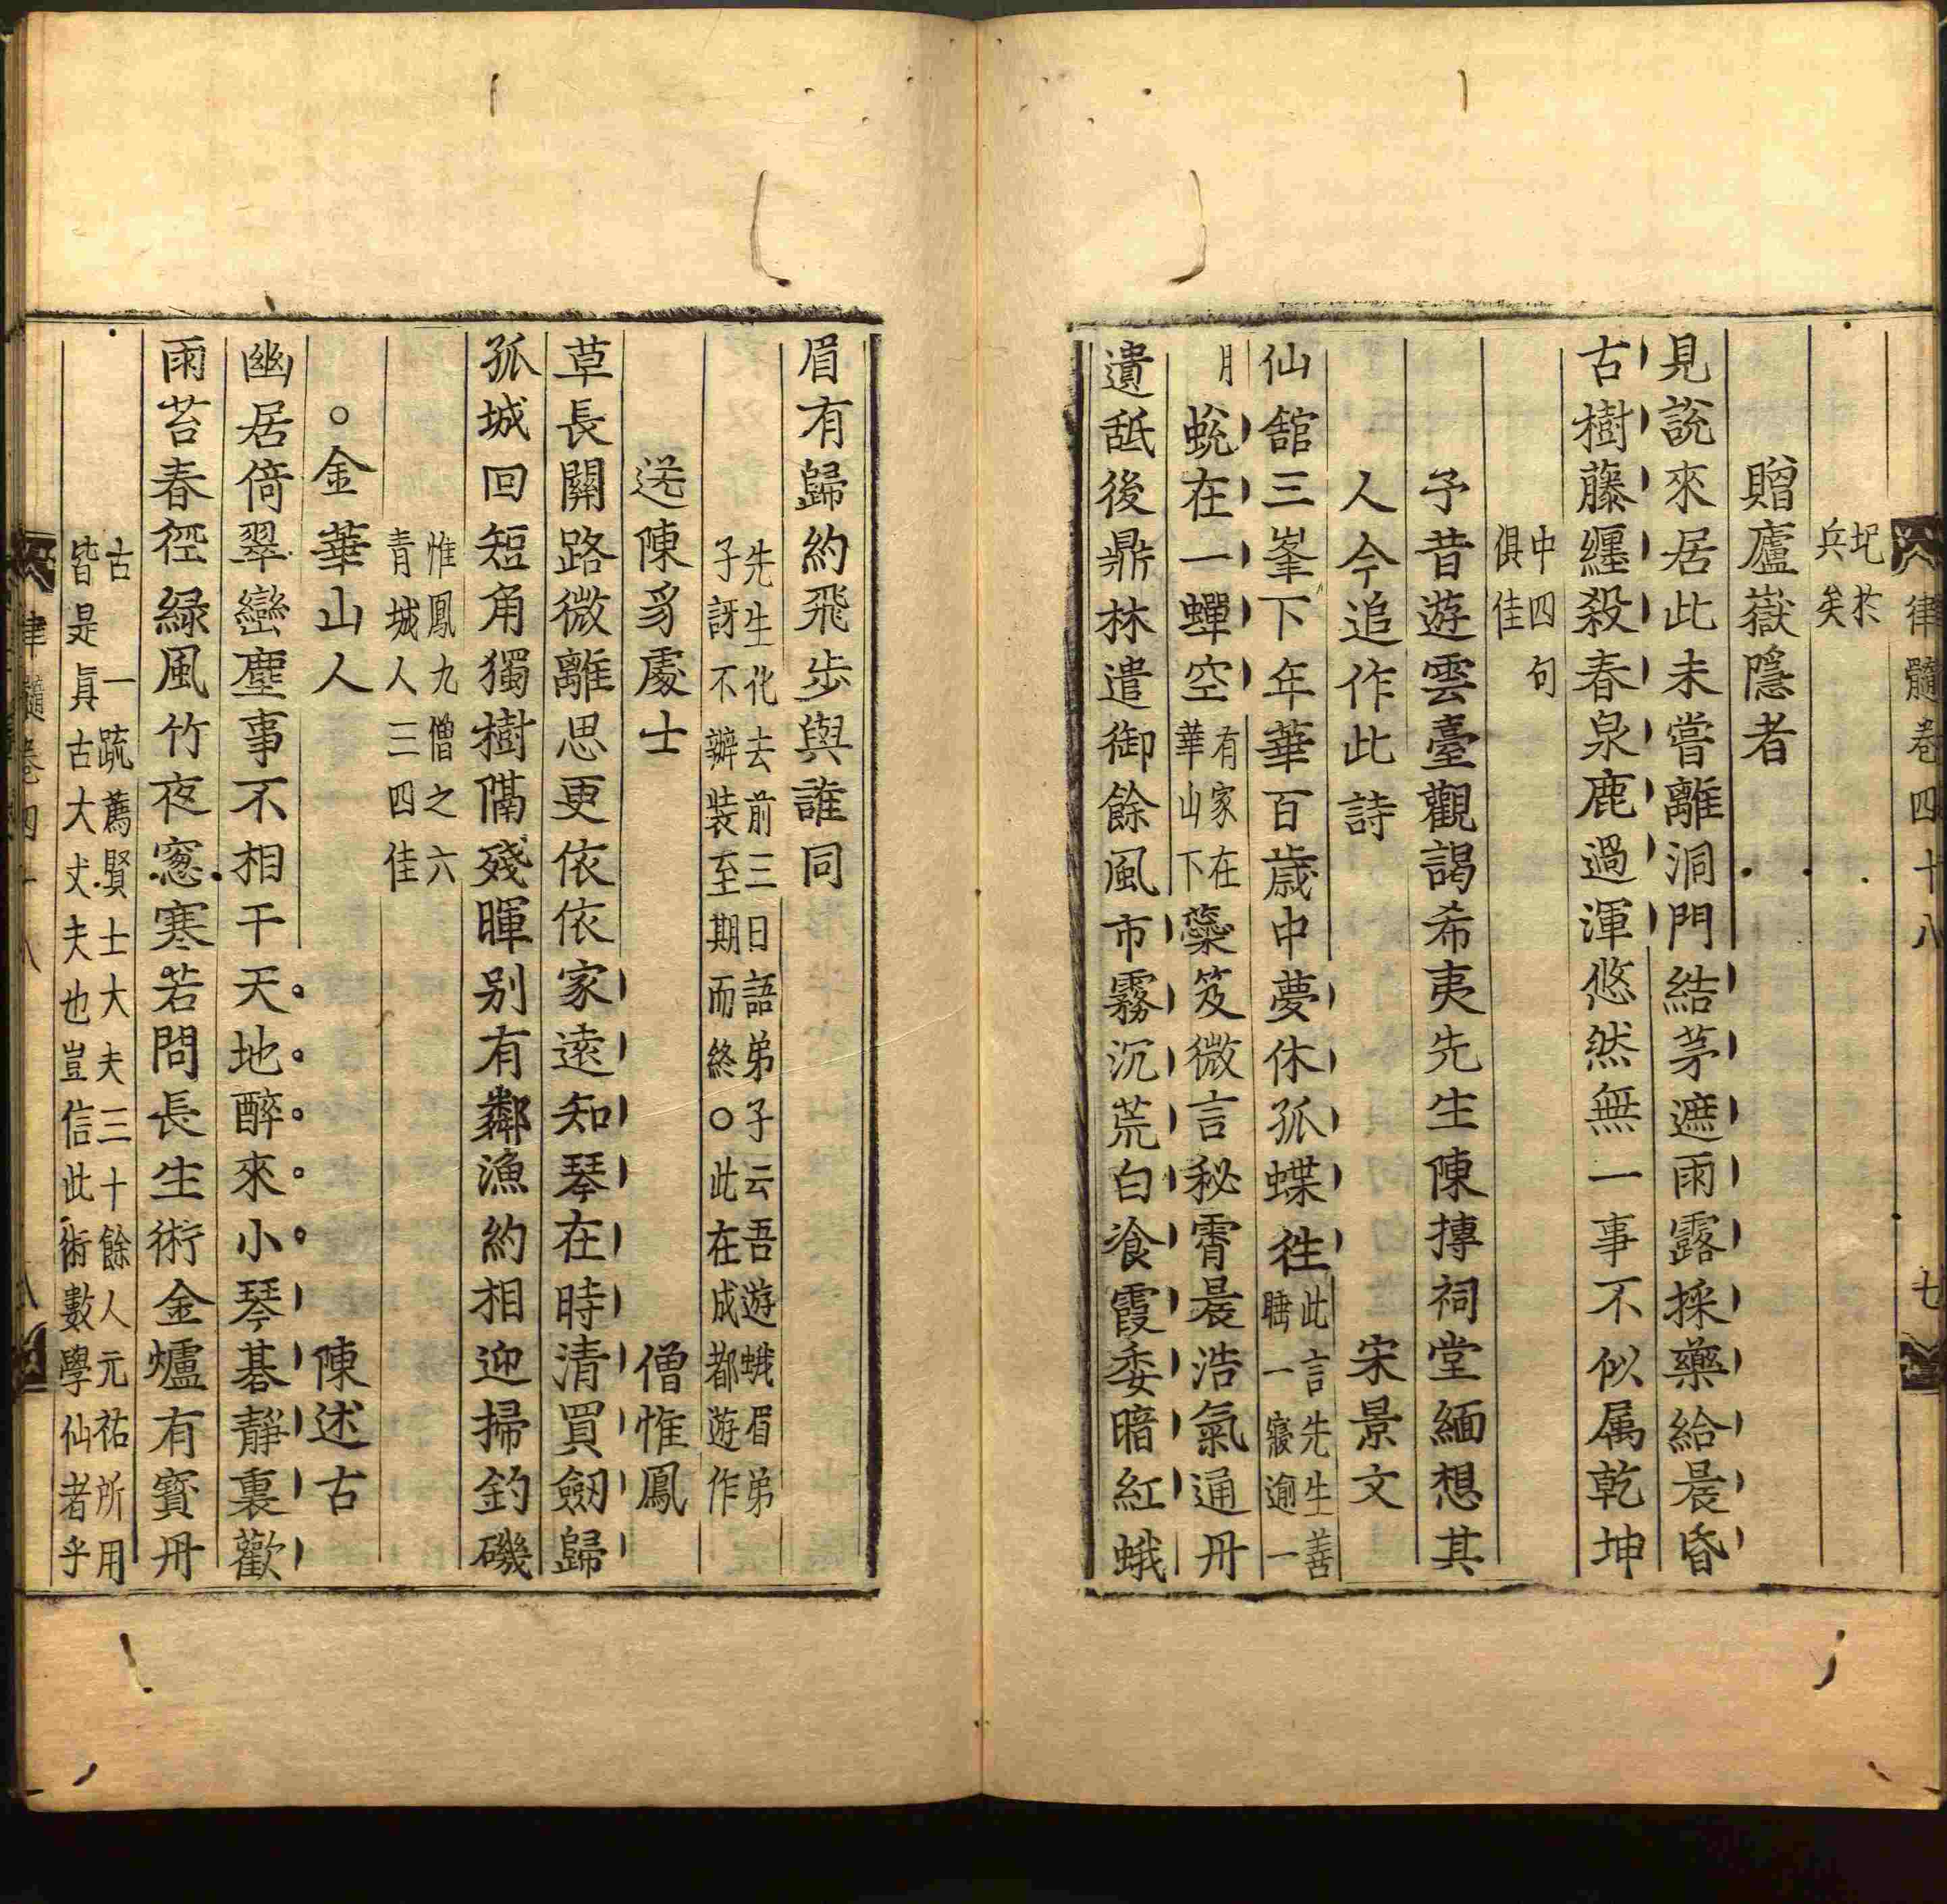 律髓卷四十八 七
圯於
兵矣
贈廬嶽隱者
見說來居此未嘗離洞門結茅遮雨露採藥給晨昏
古樹藤纏殺春泉鹿過渾悠然無一事不似属乾坤
中四句
俱佳
予昔遊雲臺觀謁希夷先生陳摶祠堂緬想其
人今追作此詩 宋景文
仙舘三峯下年華百歲中夢休孤蝶徃此言先生善
睡一寢逾一
月蛻在一蟬空有家在
華山下蘂笈微言秘霄晨浩氣通丹
遺舐後鼎林遣御餘風市霧沉荒白飡霞委暗紅蛾
眉有歸約飛步與誰同
先生化去前三日語弟子云吾遊蛾眉弟
子訝不辦裝至期而終○此在成都遊作
送陳豸處士 僧惟鳳
草長關路微離思更依依家遠知琴在時清買劒歸
孤城回短角獨樹隔殘暉别有鄰漁約相迎掃釣磯
惟鳳九僧之六
青城人三四佳
○金華山人 陳述古
幽居倚翠巒塵事不相干天地醉來小琴碁靜裏歡
雨苔春徑緑風竹夜窻寒若問長生術金爐有寶丹
古一疏薦賢士大夫三十餘人元祐所用
皆是眞古大丈夫也豈信此術數學仙者乎
律髓卷四十八 八